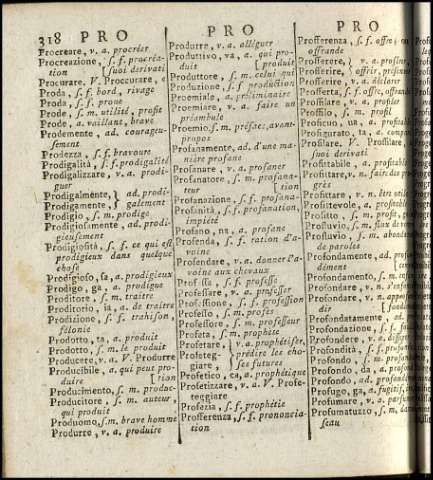 318 PRO
PRO
PRO
Procreare, v. a. procréer
Procreazione, s. f. procréa-
tion [suoi derivati
Procurare. V. Proccurare, e
Proda, s. f. bord, rivage
Proda, s. f. proue
Prode, s. m. utilité, profit
Prode, a. vaillant, brave
Prodemente, ad. courageu-
sement
Prodezza, s. f. bravoure
Prodigalità, s. f. prodigalité
Prodigalizzare, v. a. prodi-
guer
Prodigalmente, } ad. prodi-
Prodigamente, } galement
Prodigio, s. m. prodige
Prodigiosamente, ad. prodi-
gieusement
Prodigiosità, s. f. ce qui est
prodigieux dans quelque
chose
Prodigioso, sa, a. prodigieux
Prodigo, ga, a. prodigue
Proditore, s. m. traitre
Proditorio, ia, a. de traitre
Prodizione, s. f. trahison,
félonie
Prodotto, ta, a. produit
Prodotto, s. m. le produit
Producere, v. a. V. Produrre
Producibile, a. qui peut pro-
duire [tion
Producimento, s. m. produc-
Producitore, s. m. auteur,
qui produit
Produomo, s. m. brave homme
Produrre, v. a. produire
Produrre, v. a. alléguer
Produttivo, va, a. qui pro-
duit [produit
Produttore, s. m. celui qui
Produzione, s. f. production
Proemiale, a. préliminaire
Proemiare, v. a. faire un
préambule
Proemio, s. m. préface, avant-
propos
Profanamente, ad. d'une ma-
nière profane
Profanare, v. a. profaner
Profanatore, s. m. profana-
teur [tion
Profanazione, s. f. profana-
Profanità, s. f. profanation,
impiété
Profano, na, a. profane
Profenda, s. f. ration d'a-
voine
Profendare, v. a. donner l'a-
voine aux chevaux
Professa, s. f. professe
Professare, v. a. professer
Professione, s. f. profession
Professo, s. m. profès
Professore, s. m. professeur
Profeta, s. m. prophète
Profetare, } v. a. prophétiser,
Profeteg- } prédire les cho-
giare, } ses futures
Profetico, ca, a. prophétique
Profetizzare, v. a. V. Profe-
teggiare
Profezia, s. f. prophétie
Profferenza, s. f. prononcia-
tion
Profferenza, s. f. offre,
offrande
Profferere,
Profferire, offrir,
Profferire, v. a.
Profferta, s. f. offre,
Proffilare, v. a. profiler
Proffilo, s. m. profil
Proficuo, ua, a. profitable
Profigurato, ta, a.
Profilare. V. Proffilare,
suoi derivati
Profittabile, a. profitable
Profittare, v. n. faire du
grès
Profittare, v. n. être utile
Profittevole, a. profitable
Profitto, s. m. profit,
Profluvio, s. m. flux de
Profluvio, s. m.
de paroles
Profondamente, ad.
dément
Profondamento, s. m.
Profondare, v. n.
Profondare, v. a.
dir
Profondatamente, ad.
Profondazione, s. f.
Profondere, v. a.
Profondità, s. f.
Profondo, s. m.
Profondo, da, a.
Profondo, ad.
Profugo, ga, a. fugitif,
Profumare, v. a.
Profumatuzzo, s. m.
seau